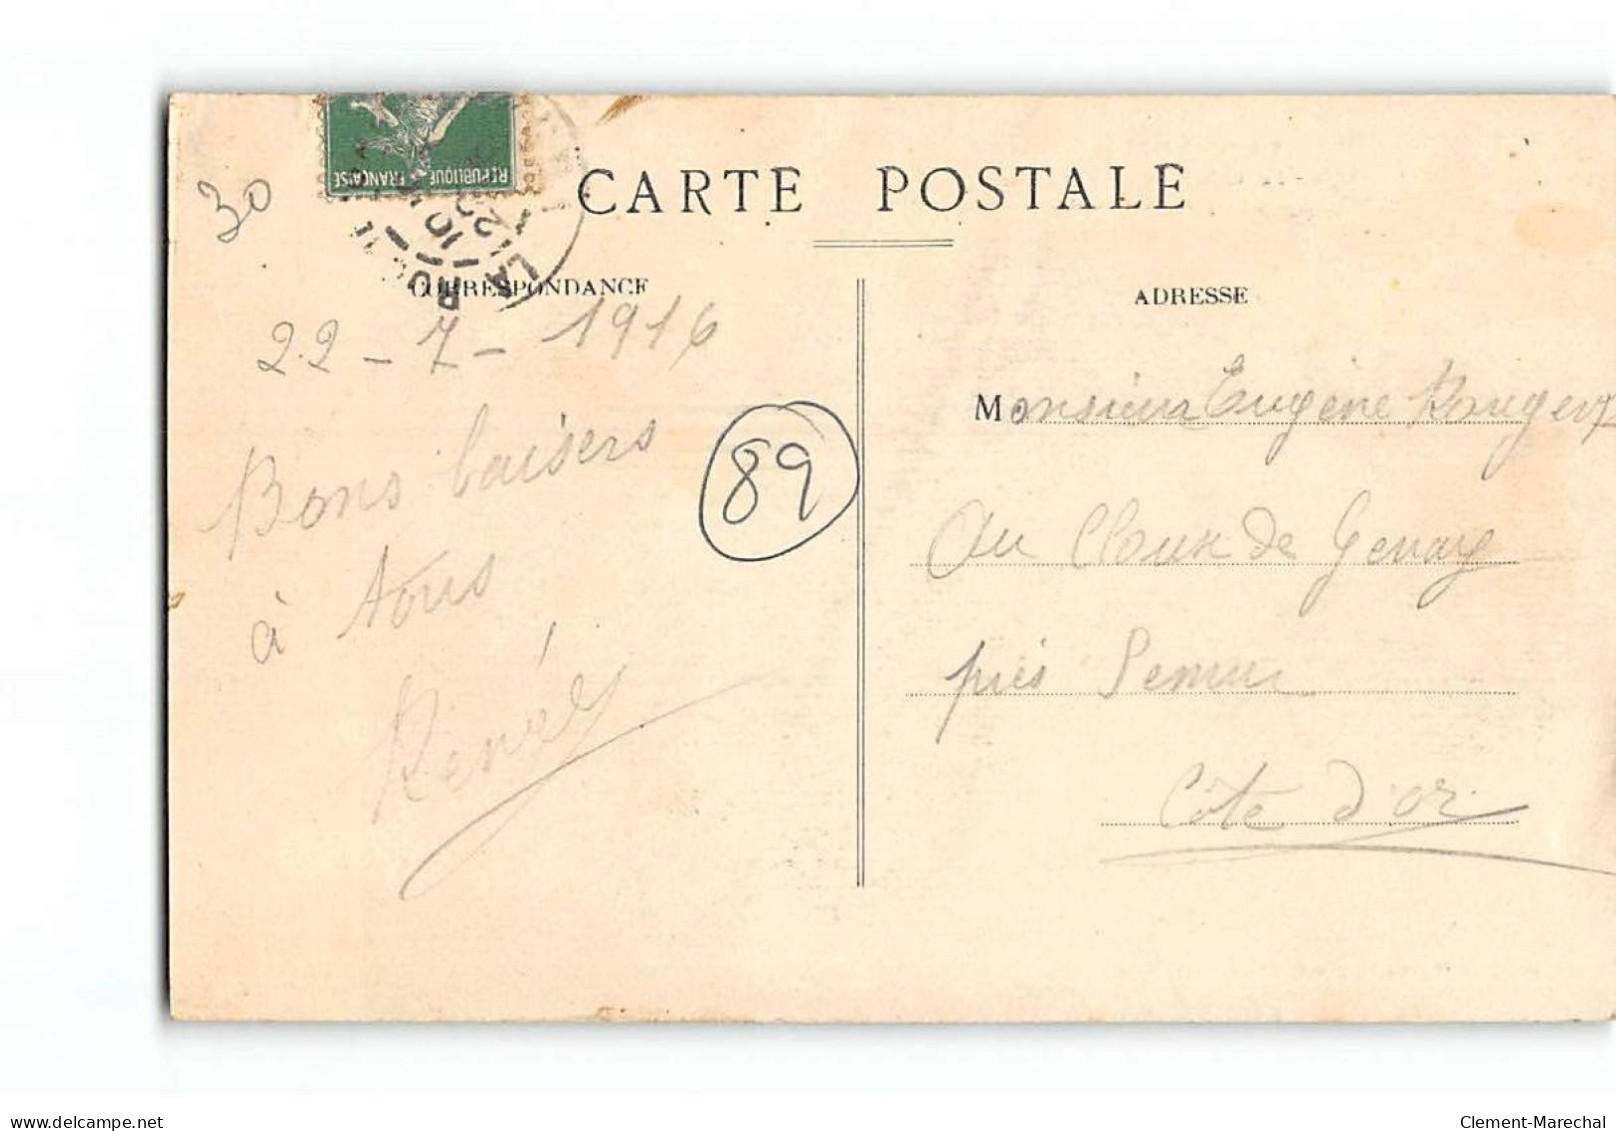 30
RÉPUBLIQUE
FRANÇAISE
CARTE POSTALE
CORRESPONDANCE
22 - 7 - 1916
Bons baisers
à tous
Renée
89
ADRESSE
Monsieur Eugène
Au Cloux de Genay
près Semur
Côte d'or
delcampe.net
Clement-Marechal